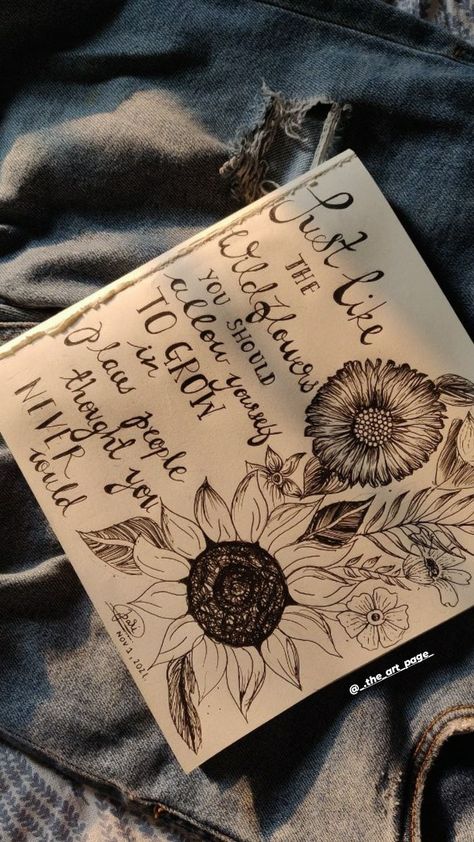 Just like
THE
Wildflowers
YOU SHOULD
allow yourself
TO GROW
in
Places people
thought you
NEVER
would
NOV 1, 2021
@_.the_art_page_